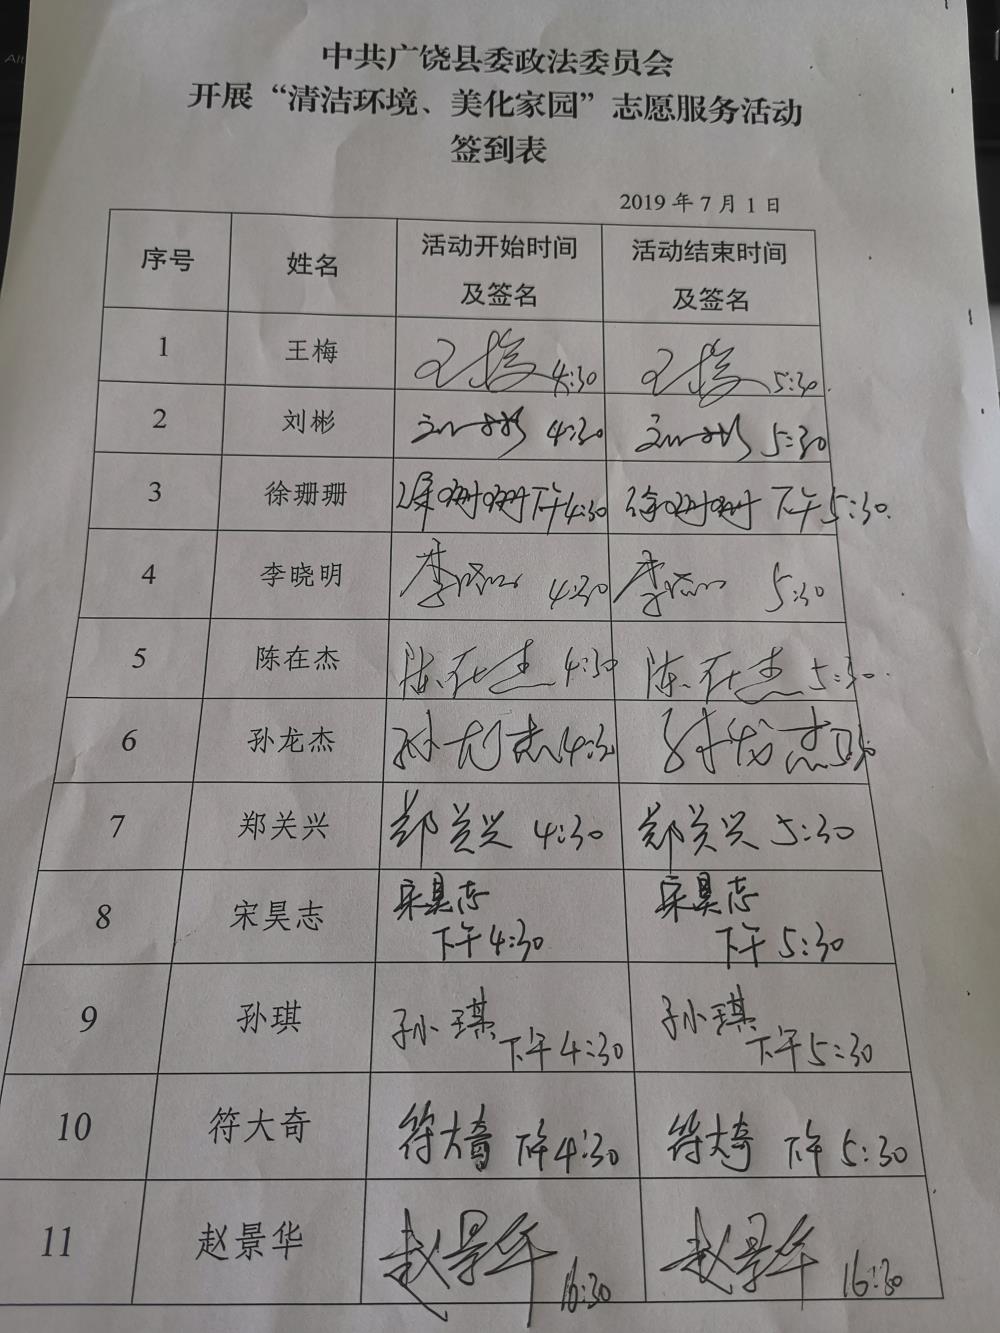 中共广饶县委政法委员会
开展“清洁环境、美化家园”志愿服务活动
签到表
2019年7月1日
序号 姓名 活动开始时间及签名 活动结束时间及签名
1 王梅 王梅 4:30 王梅 5:30
2 刘彬 刘彬 4:30 刘彬 5:30
3 徐珊珊 徐珊珊 下午4:30 徐珊珊 下午5:30
4 李晓明 李晓明 4:30 李晓明 5:30
5 陈在杰 陈在杰 4:30 陈在杰 5:30
6 孙龙杰 孙龙杰 4:30 孙龙杰 5:30
7 郑关兴 郑关兴 4:30 郑关兴 5:30
8 宋昊志 宋昊志 下午4:30 宋昊志 下午5:30
9 孙琪 孙琪 下午4:30 孙琪 下午5:30
10 符大奇 符大奇 下午4:30 符大奇 下午5:30
11 赵景华 赵景华 16:30 赵景华 16:30